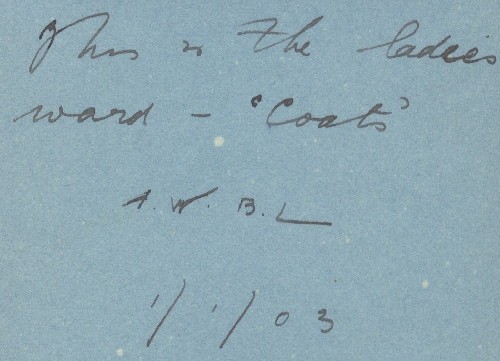 This is the ladies
ward - 'Coats'
A. W. B. L
1/1/03